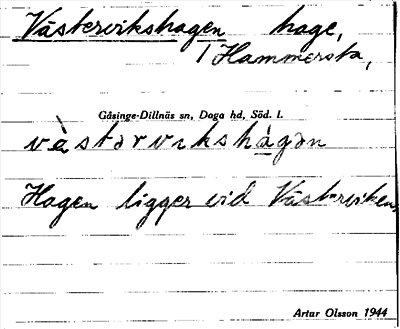 Västervikshagen hage,
Hammersta,
Gåsinge-Dillnäs sn, Daga hd, Söd. l.
vàstərvikshágən
Hagen ligger vid Västerviken.
Artur Olsson 1944